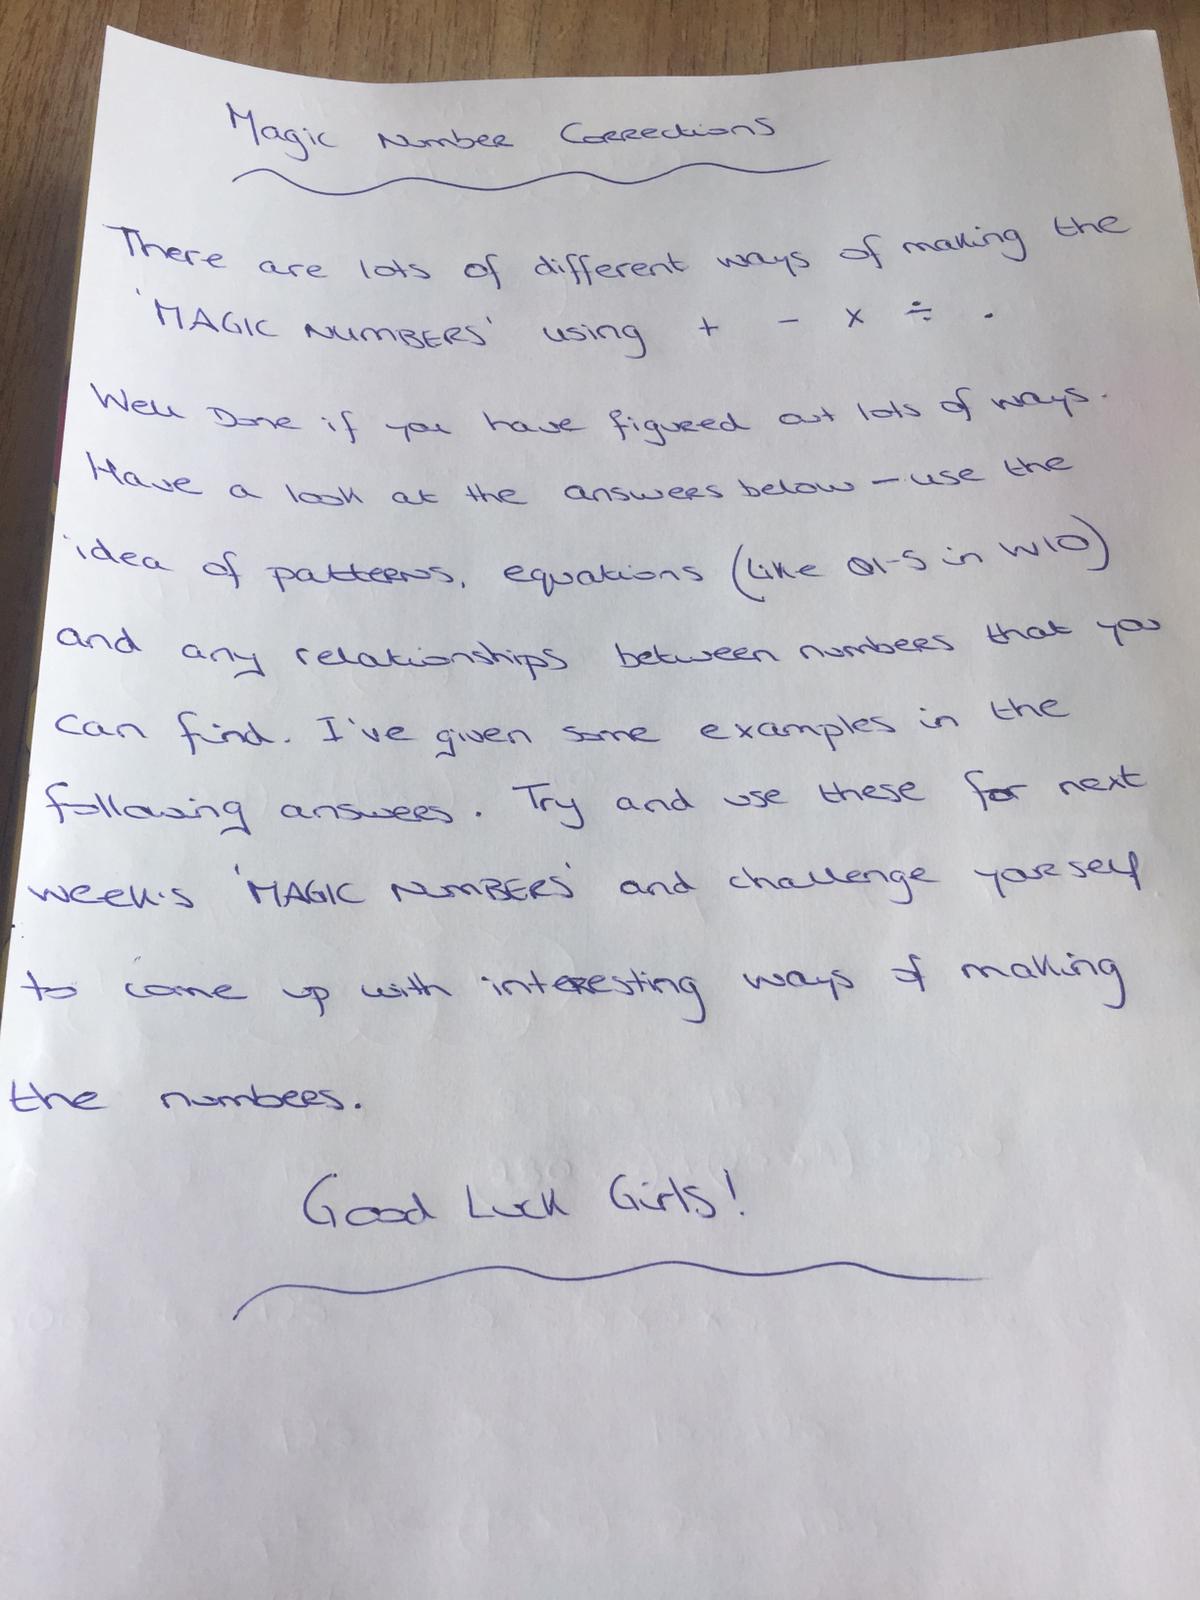 Magic Number Corrections
There are lots of different ways of making the
'MAGIC NUMBERS' using + - x ÷ .
Well Done if you have figured out lots of ways.
Have a look at the answers below - use the
idea of patterns, equations (like Q1-5 in W10)
and any relationships between numbers that you
can find. I've given some examples in the
following answers. Try and use these for next
week's 'MAGIC NUMBERS' and challenge yourself
to come up with interesting ways of making
the numbers.
Good Luck Girls!